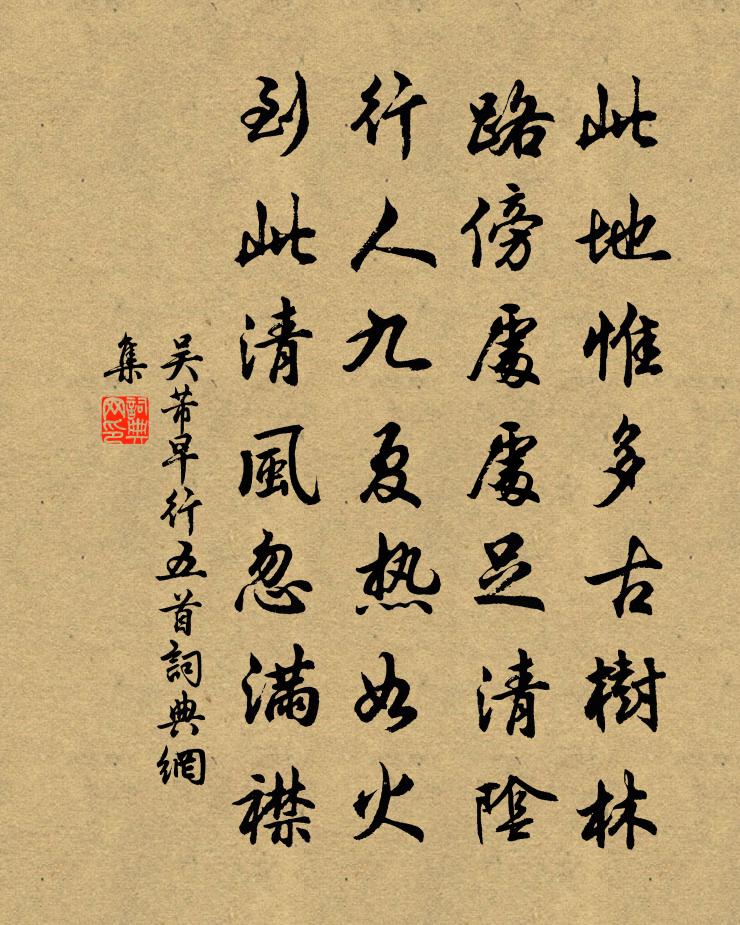 此地惟多古樹林
路傍處處足清陰
行人九夏热如火
到此清風忽满襟
吴芾早行五首詞典網
集
詞典
网印